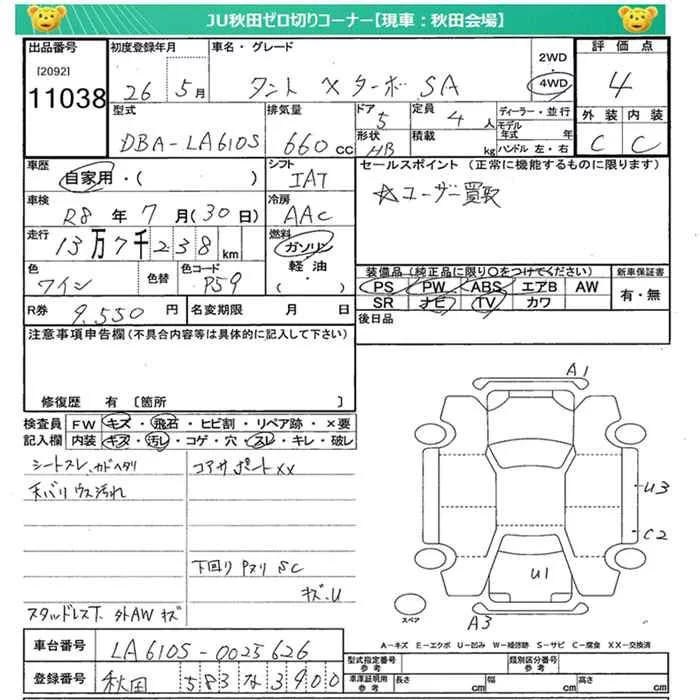 JU秋田ゼロ切りコーナー【現車：秋田会場】
出品番号
[2092]
11038
初度登録年月
26 5月
車名・グレード
タント X ターボ SA
2WD
4WD
評価点
4
外装 内装
C C
型式
DBA-LA610S
排気量
660 cc
ドア
5
形状
HB
定員
4 人
積載
kg
ディーラー・並行
モデル
年式 年
ハンドル 左・右
車歴
自家用・( )
シフト
IAT
セールスポイント (正常に機能するものに限ります)
☆ユーザー買取
車検
R8 年 7 月(30 日)
冷房
AAC
走行
13万7千238 km
燃料
ガソリン
軽・油
( )
色
ワイン
色替
色コード
P59
装備品(純正品に限り○をつけてください)
PS PW ABS エアB AW
SR ナビ TV カワ
新車保証書
有・無
R券
9.550 円
名変期限 月 日
後日品
注意事項申告欄(不具合内容等は具体的に記入して下さい)
修復歴 有 〔箇所 〕
検査員
記入欄
FW キズ・飛石・ヒビ割・リペア跡・×要
内装 キズ・汚レ・コゲ・穴・スレ・キレ・破レ
シートスレ、カドヘタリ
天バリ ウス汚れ
コアサポートXX
下回り Pスリ SC
キズ、U
スタッドレスT. 外AW キズ
A1
U3
C2
U1
A3
スペア
A-キズ E-エクボ U-凹み W-補修跡 S-サビ C-腐食 XX-交換済
車台番号
LA610S-0025626
登録番号
秋田 583 な 3900
型式指定番号
参考
類別区分番号
参考
車庫証明用
参考
長さ cm
幅 cm
高さ cm